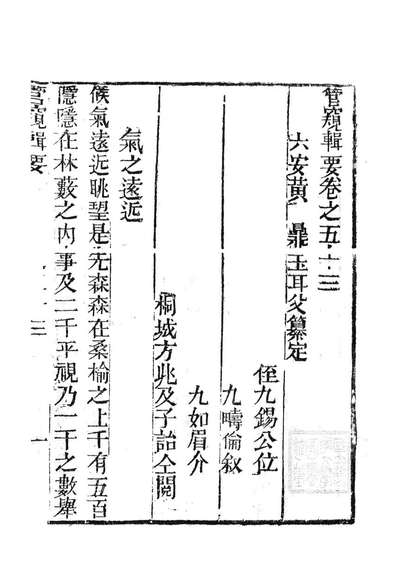 管窺輯要卷之五十三
六安黃鼎玉耳父纂定
侄九錫公位
九疇倫敘
九如眉介
桐城方兆及子詒仝閱
氣之遠近
候氣遠近眺望是先森森在桑榆之上千有五百
隱隱在林藪之內事及二千平視乃一千之數舉
管窺輯要